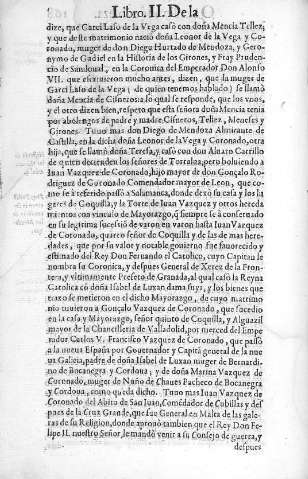 Libro. II. De la
dize, que Garci Laso de la Vega casò con doña Mencia Tellez,
y que deste matrimonio nacio doña Leonor de la Vega y Co-
ronada, muger de don Diego Hurtado de Mendoza, y Gero-
nymo de Gudiel en la Historia de los Girones, y Fray Pruden-
cio de Sandoual, en la Coronica del Emperador Don Alonso
VII. que escriuieron mucho antes, dizen, que la muger de
Garci Laso de la Vega (de quien tenemos hablado) se llamò
doña Mencia de Cisneros; a lo qual se responde, que los vnos,
y el otro dizen bien, respeto que esta señora doña Mencia tenia
por abolengos de padre y madre, Cisneros, Tellez, Meneses, y
Girones. Tuuo mas don Diego de Mendoza Almirante de
Castilla, en la dicha doña Leonor de la Vega y Coronado, otra
hija, que se llamò doña Teresa, y casò con don Aluaro Carrillo
de quien decienden los señores de Torralua, pero boluiendo a
Iuan Vazquez de Coronado, hijo mayor de don Gonçalo Ro-
driguez de Coronado Comendador mayor de Leon, que co-
mo se à referido passò a Salamanca, donde dexò su casa y los lu
gares de Coquilla, y la Torre de Iuan Vazquez y otros hereda
mientos con vinculo de Mayorazgo, q̃ siempre se à conseruado
en su legitima sucesiõ de varon en varon hasta Iuan Vazquez
de Coronado, quarto señor de Coquilla y de las demas here-
dades, que por su valor y notable gouierno fue fauorecido y
estimado del Rey Don Fernando el Catolico, cuyo Capitan le
nombra su Coronica, y despues General de Xerez de la Fron-
tera, y vltimamente Prefeto de Granada, al qual casò la Reyna
Catolica cõ doña Isabel de Luxan dama suya, y los bienes que
traxo se metieron en el dicho Mayorazgo, de cuyo matrimo
nio tuuieron a Gonçalo Vazquez de Coronado, que sucedio
en la casa y Mayorazgo, señor quinto de Coquilla, y Alguazil
mayor de la Chancilleria de Valladolid, por merced del Empe
rador Carlos V. Francisco Vazquez de Coronado, que passò
a la nueua España por Gouernador y Capitã general de la nue
ua Galizia, padre de doña Isabel de Luxan muger de Bernardi-
no de Bocanegra y Cordoua; y de doña Marina Vazquez de
Coronado, muger de Nuño de Chaues Pacheco de Bocanegra
y Cordoua, como queda dicho. Tuuo mas Iuan Vazquez de
Coronado del Abito de San Iuan, Comẽdador de Cubillas y des
pues de la Cruz Grande, que fue General en Malta de las gale-
ras de su Religion, donde aprouò tambien que el Rey Don Fe-
lipe II. nuestro Señor, le mandò venir a su Consejo de guerra, y
despues